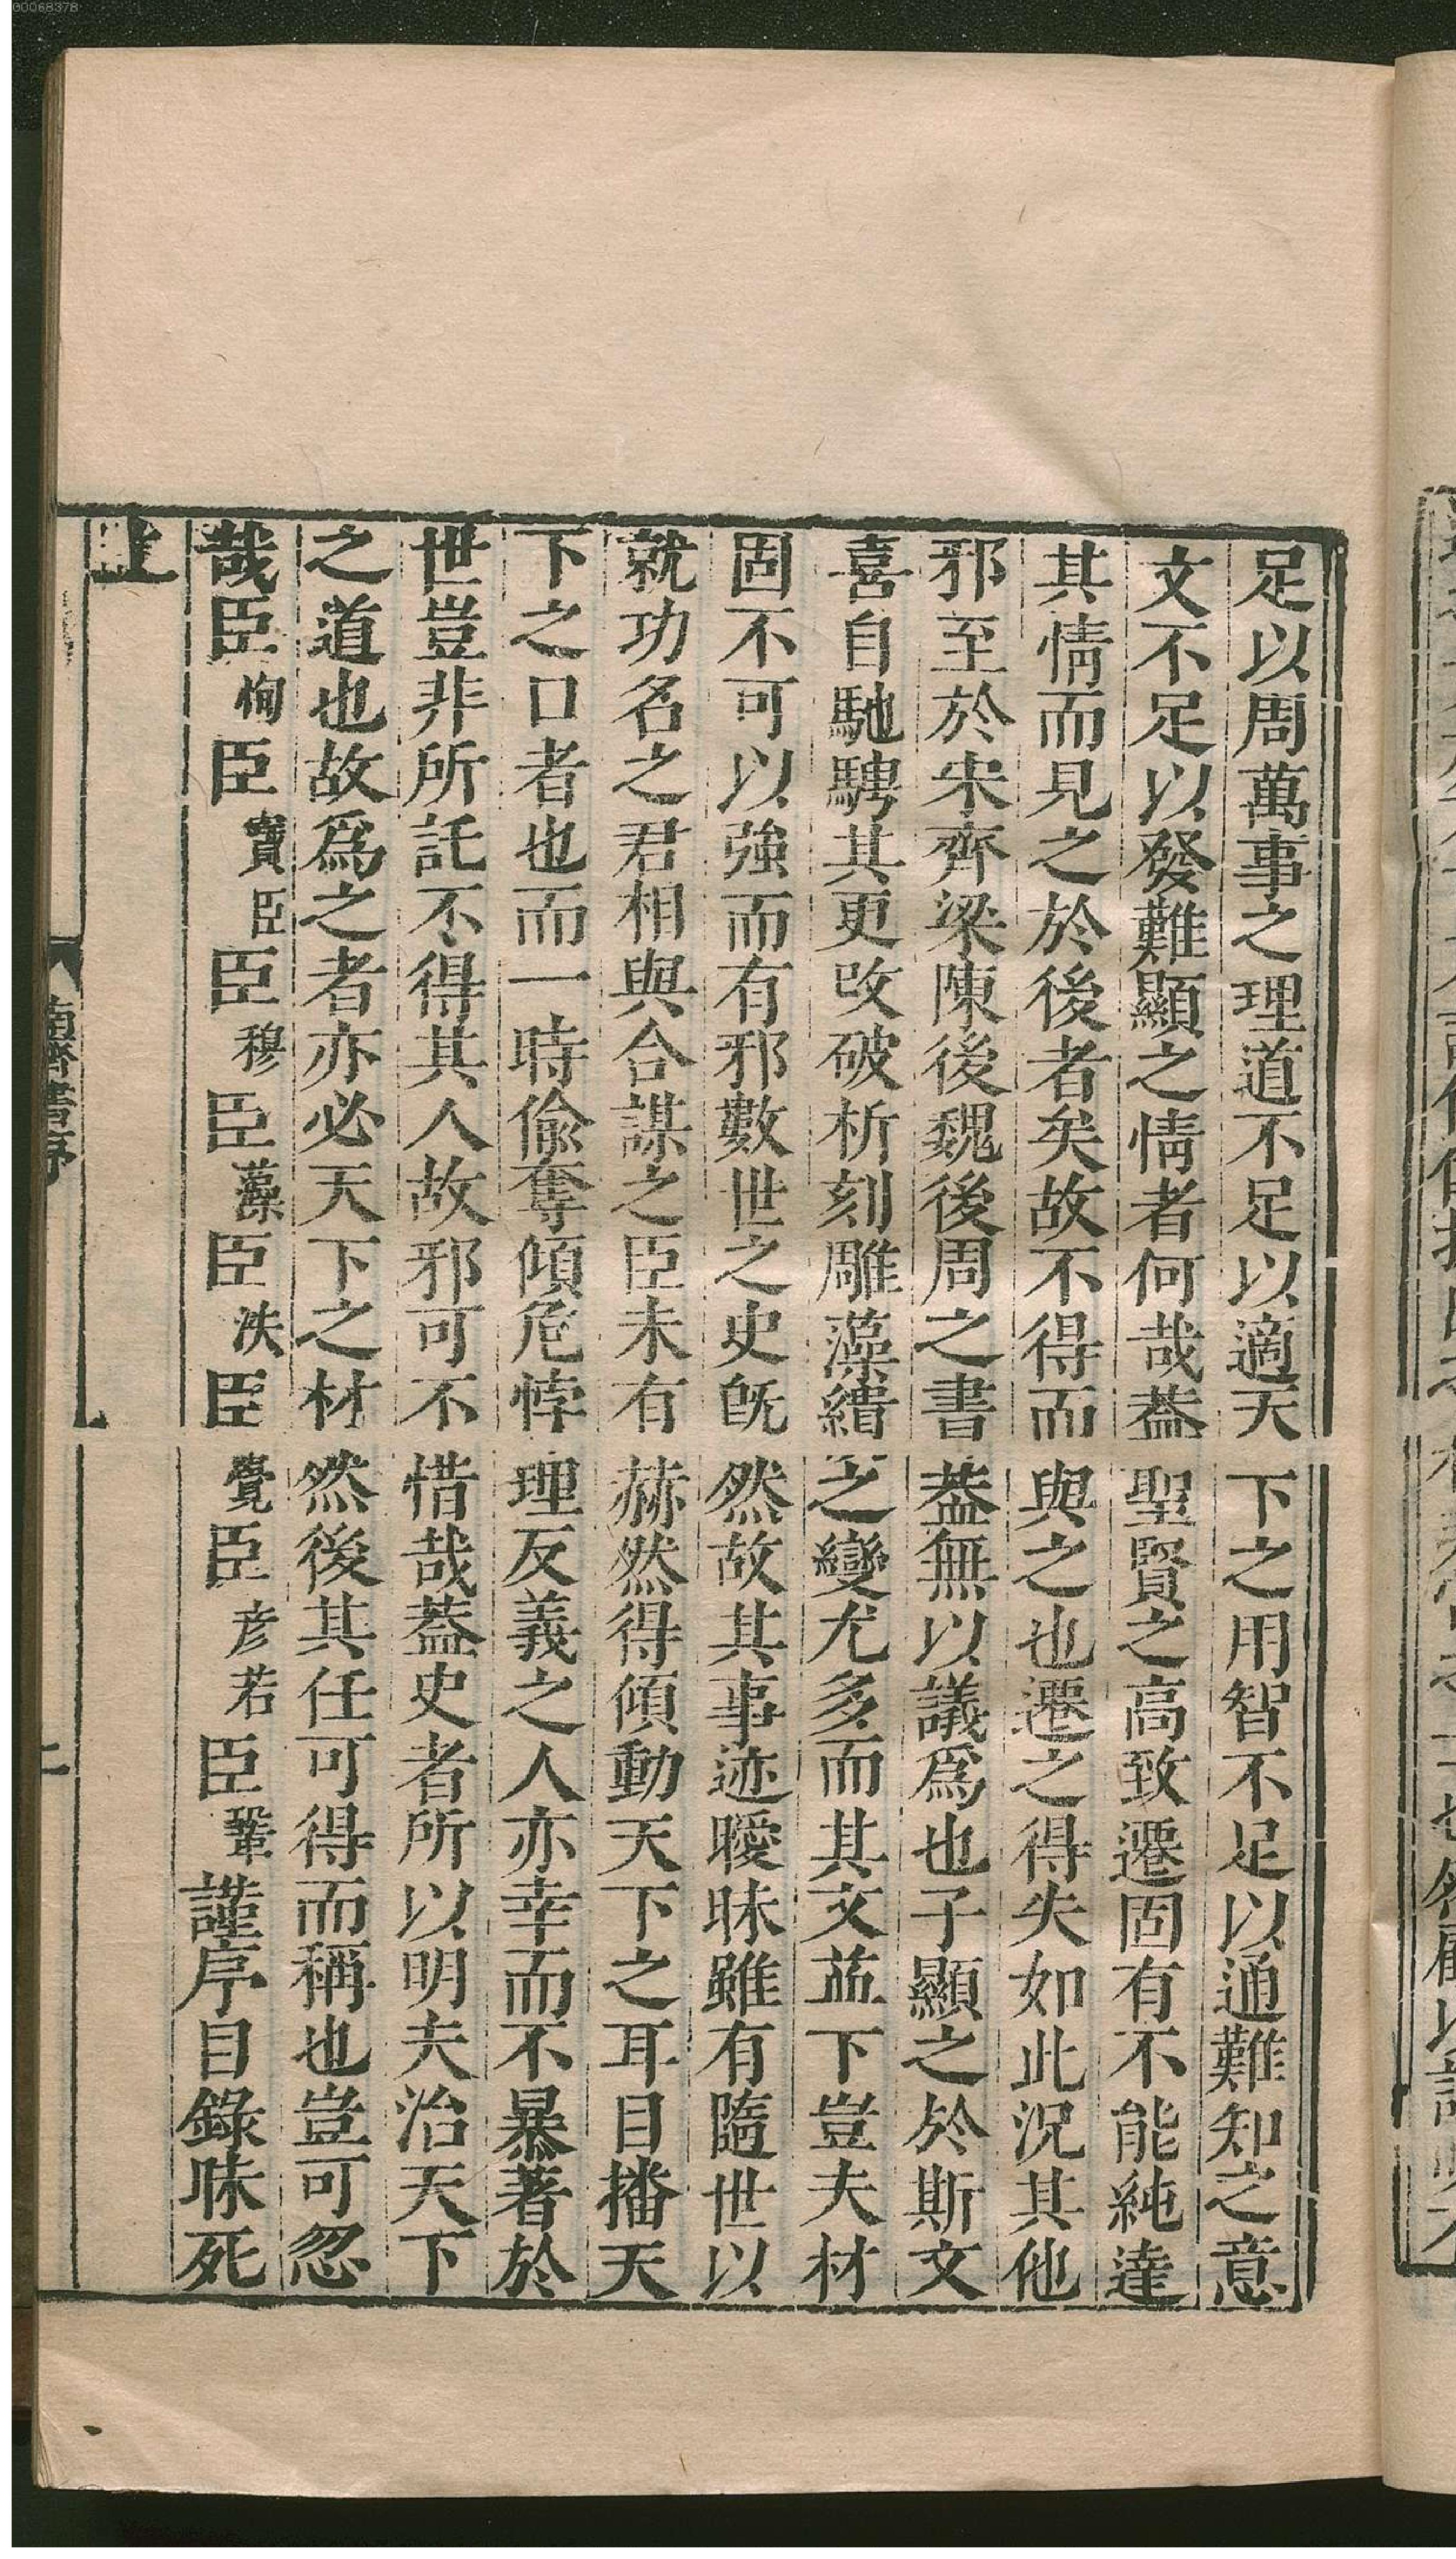 足以周萬事之理道不足以適天下之用智不足以通難知之意
文不足以發難顯之情者何哉蓋聖賢之高致遷固有不能純達
其情而見之於後者矣故不得而與之也遷之得失如此況其他
邪至於宋齊梁陳後魏後周之書蓋無以議爲也子顯之於斯文
喜自馳騁其更改破析刻雕藻繢之變尤多而其文益下豈夫材
固不可以強而有邪數世之史既然故其事迹曖昧雖有隨世以
就功名之君相與合謀之臣未有赫然得傾動天下之耳目播天
下之口者也而一時偷奪傾危悖理反義之人亦幸而不暴著於
世豈非所託不得其人故邪可不惜哉蓋史者所以明夫治天下
之道也故爲之者亦必天下之材然後其任可得而稱也豈可忽
哉臣恂臣寶臣臣穆臣藻臣洙臣覺臣彥若臣鞏謹序目錄昧死
上
南齊書序
00068378